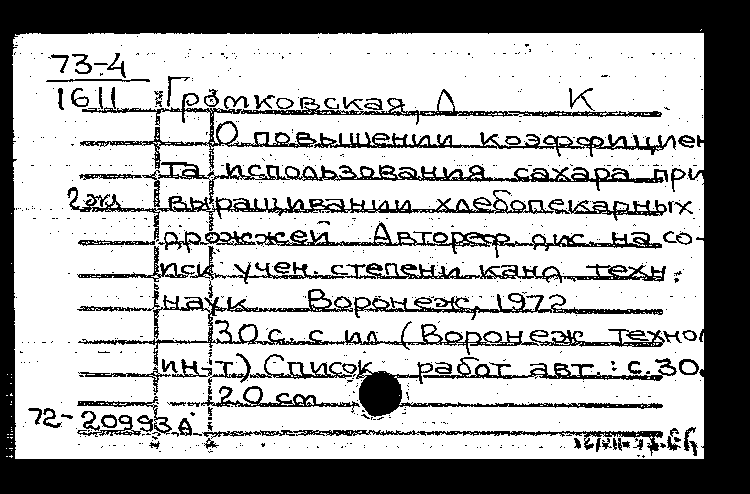 73-4
1611 Громковская, Л К
О повышении коэффициен
та использования сахара при
2 экз выращивании хлебопекарных
дрожжей Автореф. дис. на со-
иск учен. степени канд. техн.
наук Воронеж, 1972
30 с. с ил (Воронеж технол
ин-т) Список работ авт.: с. 30.
20 cm
72-20993А